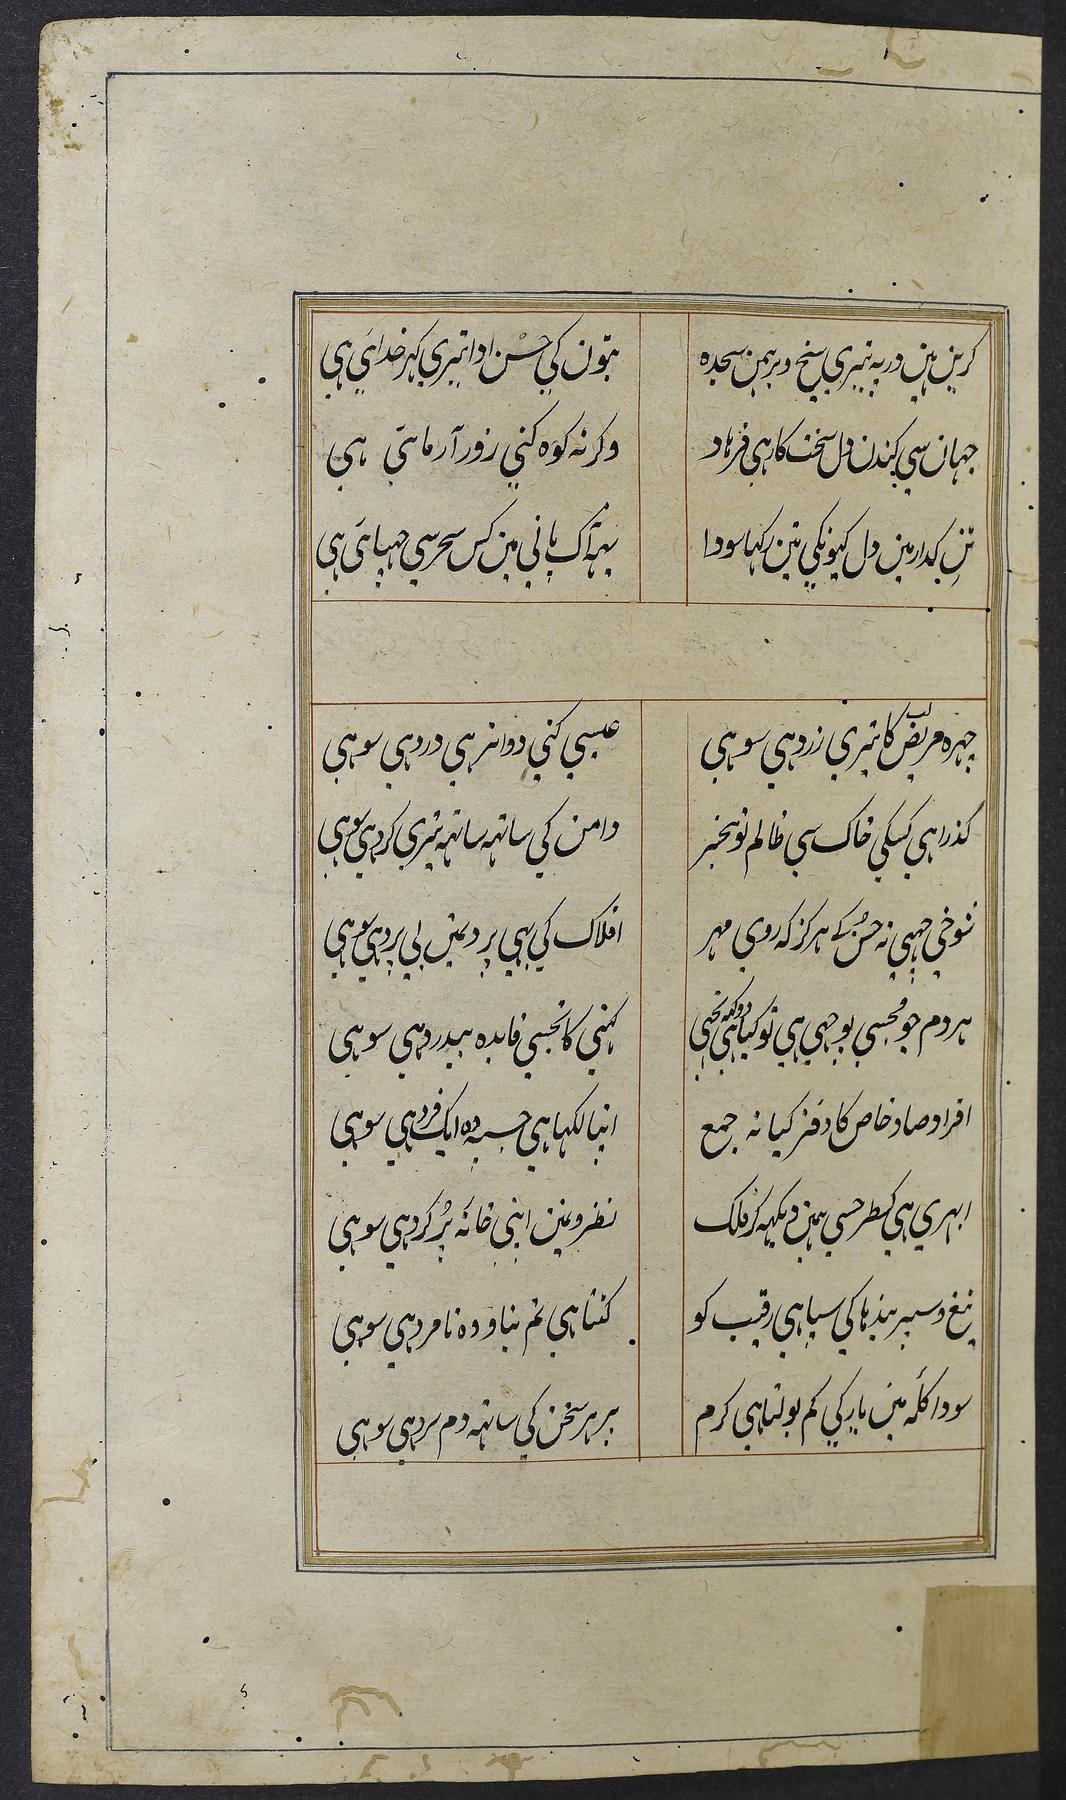 کرین ہین در پہ تیری شیخ و برہمن سجدہ بتون کی حسن ادا تیری کہر خدائی ہی
جہان سی کندن دل سخت کار ہی فرہاد وکرنہ کوہ کنی زور آزمائی ہی
تنِ کدار مین دل کیونکی تین رکہا سودا یہہ آک پانی مین کس سحر سی چہپائی ہی
چہرہ مریض لب کا تیری زرد ہی سو ہی عیسی کنی دوا نہ ہی درد ہی سو ہی
کذرا ہی کسکی خاک سی ظالم تو بیخبر دامن کی ساتہہ ساتہہ تیری کرد ہی سو ہی
شوخی چہپی نہ حسن کے ہرکز کہ روی مہر افلاک کی بہی پردیمین بی پرد ہی سو ہی
ہر دم جو مجسی پوچہی ہی تو کیا ہی دوکہہ تجہی کہنی کا تجسی فایدہ بیدرد ہی سو ہی
افراد صاد خاص کا دفتر کیا نہ جمع اپنا لکہا ہی جسپہ وہ ایک فرد ہی سو ہی
ابہری ہی کسطرحسی ہمین دیکہہ کر فلک نظرونمین اپنی خانہ پُر کرد ہی سو ہی
تیغ و سپر بندہا کی سپاہی رقیب کو کتنا ہی تم بناو وہ نامرد ہی سو ہی
سودا کلہ مین یار کی کم بولتا ہی کرم پر ہر سخن کی ساتہہ دم سرد ہی سو ہی